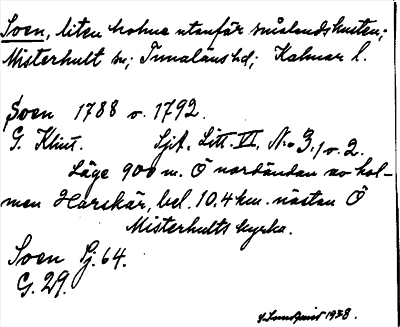 Soen, liten holme utanför smålandskusten;
Misterhult sn; Tunaläns hd; Kalmar l.
Soen 1788 o. 1792.
G. Klint. Sjk. Litt. VI. No 3, 1 o. 2.
Läge 900 m. Ö nordändan av hol-
men Harskär, bel. 10.4 km. nästan Ö
Misterhults kyrka.
Soen Sj. 64.
G. 29.
1938.